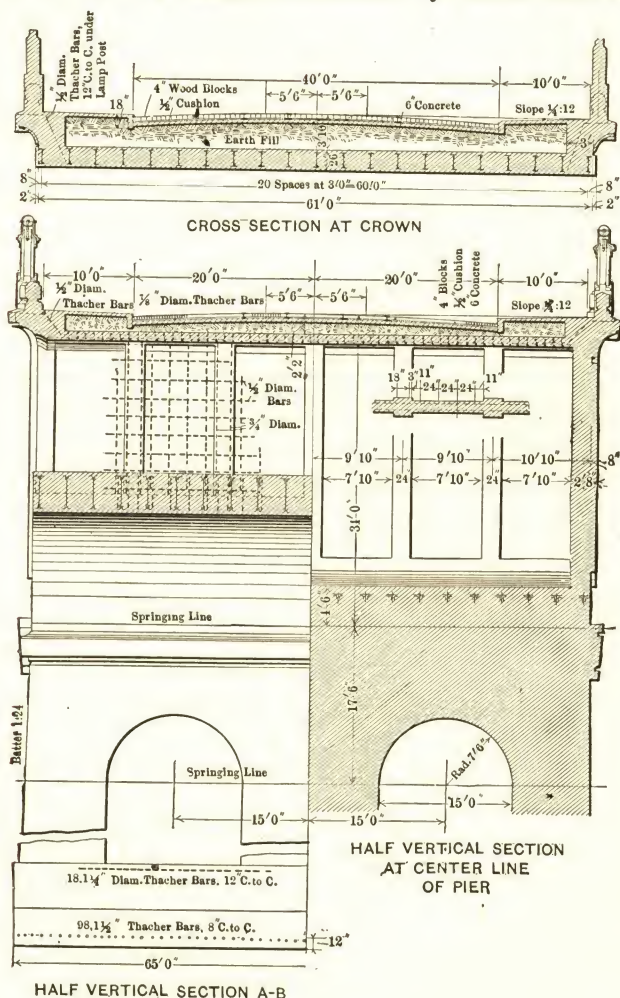 ½" Diam.
Thacher Bars,
12"C. to C. under
Lamp Post
18"
4" Wood Blocks
½" Cushion
40'0"
5'6"
5'6"
6" Concrete
10'0"
Slope ¼:12
Earth Fill
3'10"
26"
3'
8"
2"
20 Spaces at 3'0"=60'0"
61'0"
8"
2"
CROSS SECTION AT CROWN
10'0"
20'0"
20'0"
10'0"
½" Diam.
Thacher Bars
⅝" Diam. Thacher Bars
5'6"
5'6"
4" Blocks
½" Cushion
6" Concrete
Slope :12
2'2"
½" Diam.
Bars
¾" Diam.
18"
3"
11"
24"
24"
24"
11"
9'10"
9'10"
10'10"
8"
7'10"
24"
7'10"
24"
7'10"
2'8"
31'0"
Springing Line
4'6"
17'6"
Batter 1:24
Springing Line
Rad. 7'6"
15'0"
15'0"
15'0"
HALF VERTICAL SECTION
AT CENTER LINE
OF PIER
18,1¼" Diam. Thacher Bars, 12"C. to C.
98,1½" Thacher Bars, 8"C. to C.
12"
65'0"
HALF VERTICAL SECTION A-B